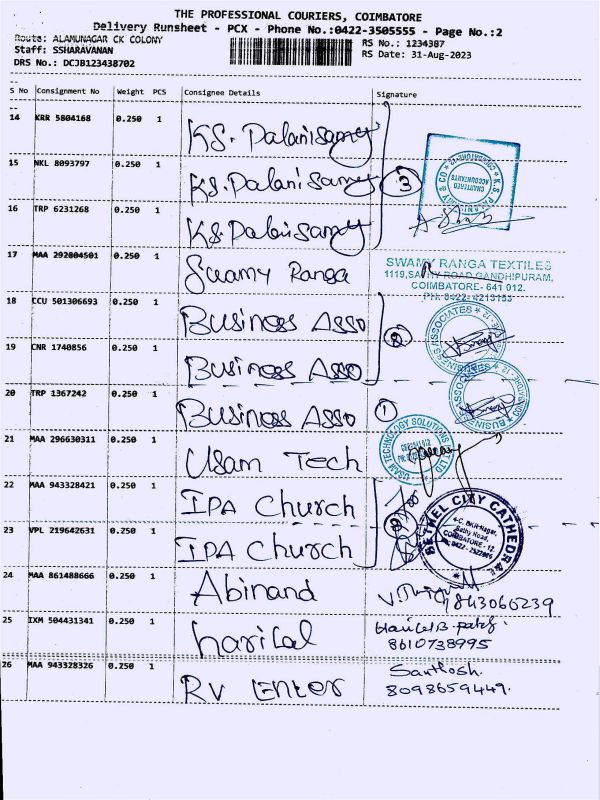 THE PROFESSIONAL COURIERS, COIMBATORE
Delivery Runsheet - PCX - Phone No.:0422-3505555 - Page No.:2
Route: ALAMUNAGAR CK COLONY
RS No.: 1234387
Staff: SSHARAVANAN
RS Date: 31-Aug-2023
DRS No.: DCJB123438702
S No Consignment No Weight PCS Consignee Details Signature
14 KRR 5804168 0.250 1 K.S. Palanisamy
15 NKL 8093797 0.250 1 K.S. Palanisamy 3
16 TRP 6231268 0.250 1 K.S. Palanisamy
K.S. PALANISAMY & CO
CHARTERED ACCOUNTANTS
17 MAA 292804501 0.250 1 Swamy Ranga
SWAMY RANGA TEXTILES
1119, SAMY ROAD, GANDHIPURAM,
COIMBATORE- 641 012.
PH: 0422- 4213153
18 CCU 501306693 0.250 1 Business Asso 2
19 CNR 1740856 0.250 1 Business Asso
20 TRP 1367242 0.250 1 Business Asso 1
21 MAA 296630311 0.250 1 Usam Tech
USAM TECHNOLOGY SOLUTIONS PVT LTD
22 MAA 943328421 0.250 1 IPA Church
23 VPL 219642631 0.250 1 IPA Church 2
BETHEL CITY CATHEDRAL
COIMBATORE - 12.
24 MAA 861488666 0.250 1 Abinand 7843066239
25 IXM 504431341 0.250 1 harilal
8610738995
26 MAA 943328326 0.250 1 RV Enter Santhosh.
8098659449.